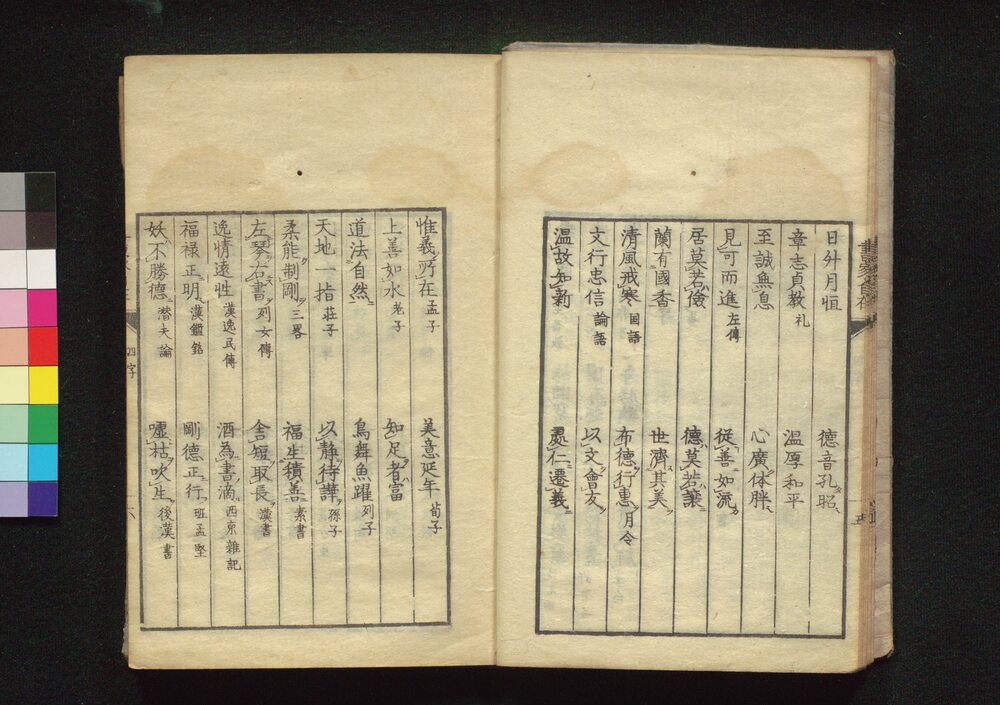 日升月恒 德音孔昭
章志貞教 礼 温厚和平
至誠無息 心廣体胖
見可而進 左傳 從善如流
居莫若儉 德莫若讓
蘭有國香 世濟其美
清風戒寒 国語 布德行惠 月令
文行忠信 論語 以文會友
温故知新 處仁遷義
惟義所在 孟子 美意延年 荀子
上善如水 老子 知足者富
道法自然 鳥舞魚躍 列子
天地一指 莊子 以静待譁 孫子
柔能制剛 三畧 福生積善 素書
左琴右書 列女傳 舎短取長 漢書
逸情遠性 漢逸民傳 酒為書滴 西京雜記
福禄正明 漢鐘銘 剛德正行 班孟堅
妖不勝德 潜夫論 嘘枯吹生 後漢書
四字